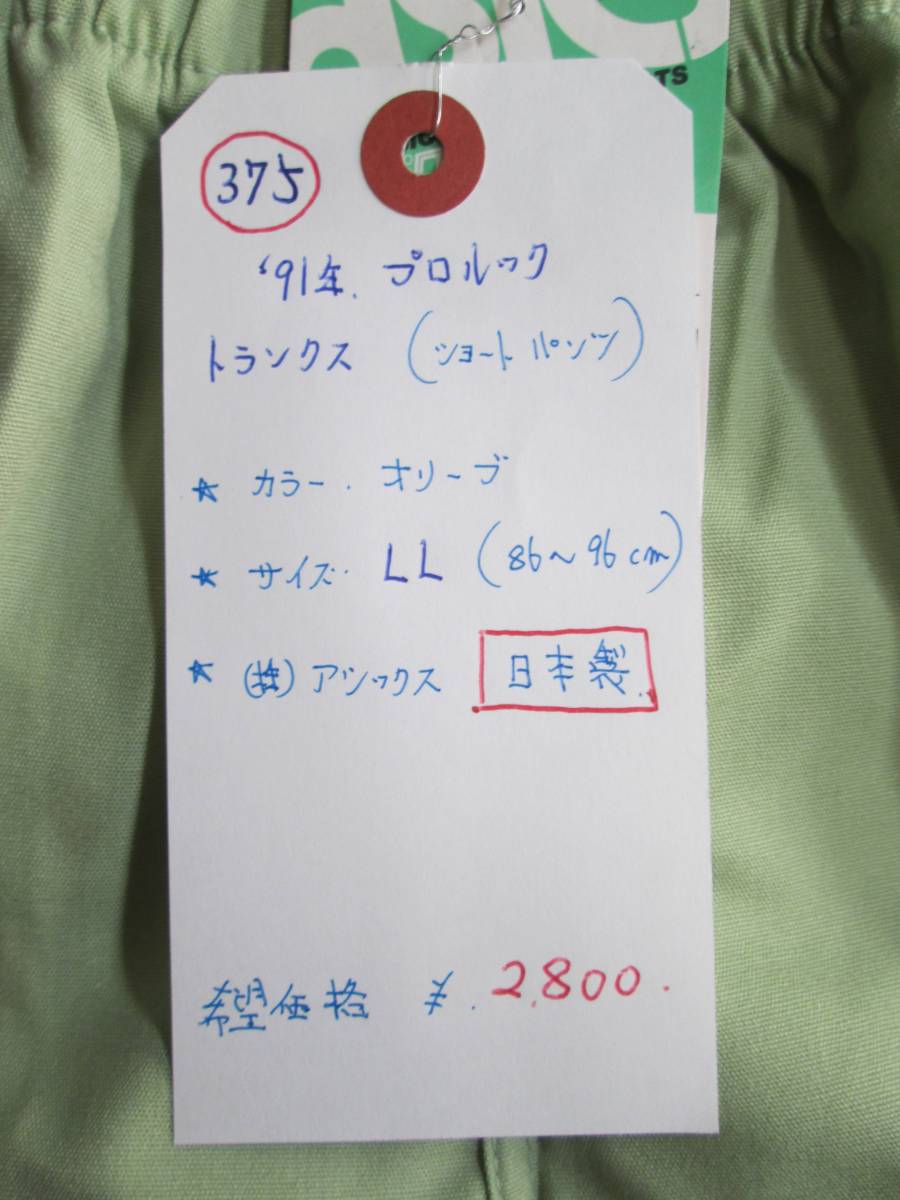 asics
TS
375
'91年. プロルック
トランクス (ショートパンツ)
☆ カラー. オリーブ
☆ サイズ. LL (86〜96cm)
☆ (株)アシックス 日本製.
希望価格 ¥. 2,800.